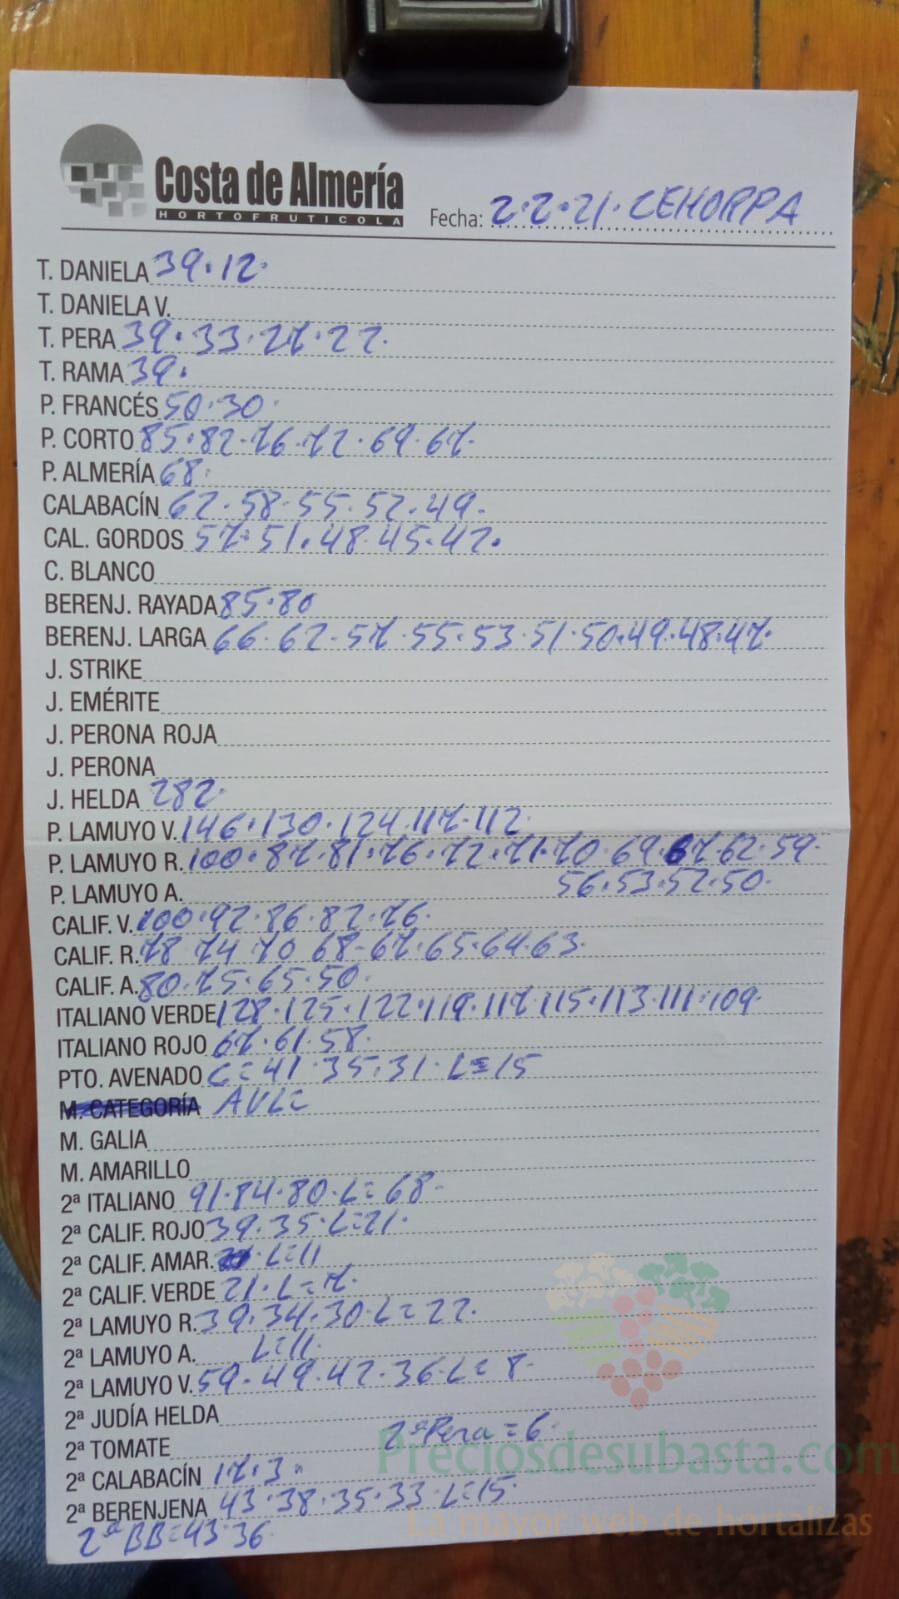 Costa de Almería
HORTOFRUTICOLA
Fecha: 2.2.21. CEHORPA
T. DANIELA 39.12.
T. DANIELA V.
T. PERA 39.33.27.22.
T. RAMA 39.
P. FRANCÉS 50.30.
P. CORTO 85.82.76.72.69.67.
P. ALMERÍA 68.
CALABACÍN 62.58.55.52.49.
CAL. GORDOS 57.51.48.45.42.
C. BLANCO
BERENJ. RAYADA 85.80
BERENJ. LARGA 66.62.57.55.53.51.50.49.48.47.
J. STRIKE
J. EMÉRITE
J. PERONA ROJA
J. PERONA
J. HELDA 282.
P. LAMUYO V. 146.130.124.117.112
P. LAMUYO R. 100.87.81.76.72.71.70.69.67.62.59.
56.53.52.50.
P. LAMUYO A.
CALIF. V. 100.92.86.82.76.
CALIF. R. 78 74 70 68-67.65.64.63.
CALIF. A. 80.75.65.50.
ITALIANO VERDE 128.125.122.119.117.115.113.111.109.
ITALIANO ROJO 67.61.58.
PTO. AVENADO C=41.35.31.L=15
M. CATEGORÍA AVL=
M. GALIA
M. AMARILLO
2ª ITALIANO 91.84.80.L=68.
2ª CALIF. ROJO 39.35.L=21.
2ª CALIF. AMAR. L=11
2ª CALIF. VERDE 21.L=7.
2ª LAMUYO R. 39.34.30.L=22.
2ª LAMUYO A. L=11.
2ª LAMUYO V. 59.49.42.36.L=8.
2ª JUDÍA HELDA
2ª TOMATE 2ªPera=6.
2ª CALABACÍN 17.3.
2ª BERENJENA 43.38.35.33.L=15.
2ª BB=43.36
Preciosdesubasta.com
La mayor web de hortalizas